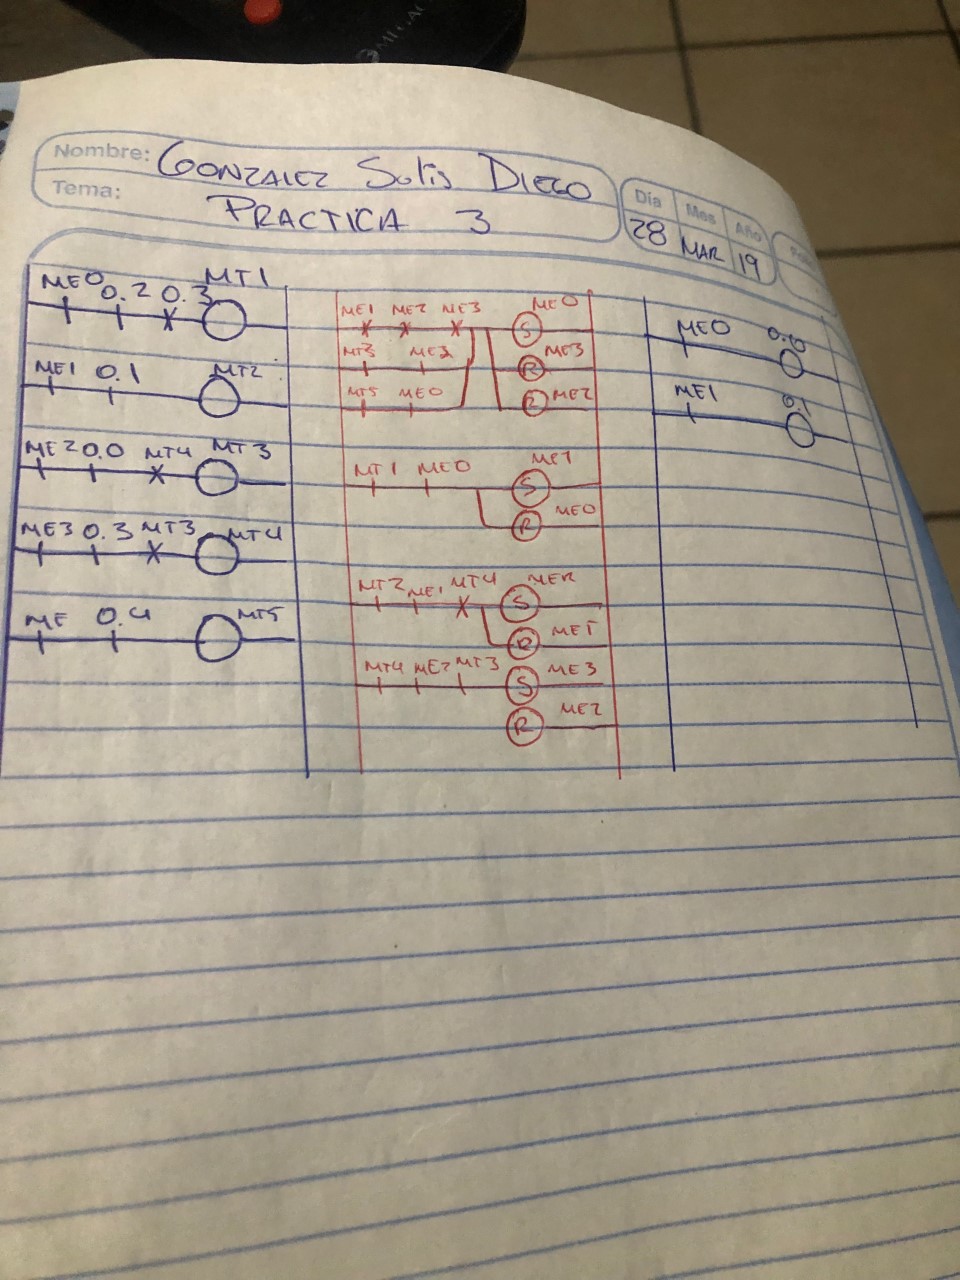 Nombre: GONZALEZ Solis DIEGO
Tema: PRACTICA 3
Día Mes Año
28 MAR 19
ME0 0.2 0.3 MT1
ME1 0.1 MT2
ME2 0.0 MT4 MT3
ME3 0.3 MT3 MT4
ME 0.4 MT5
ME1 ME2 ME3 ME0
S
MT3 ME2 R ME3
MT5 ME0 R ME2
MT1 ME0 ME1
S
R ME0
MT2 ME1 MT4 S
R ME1
MT4 ME2 MT3 S ME3
R ME2
ME0 0.0
ME1 0.1